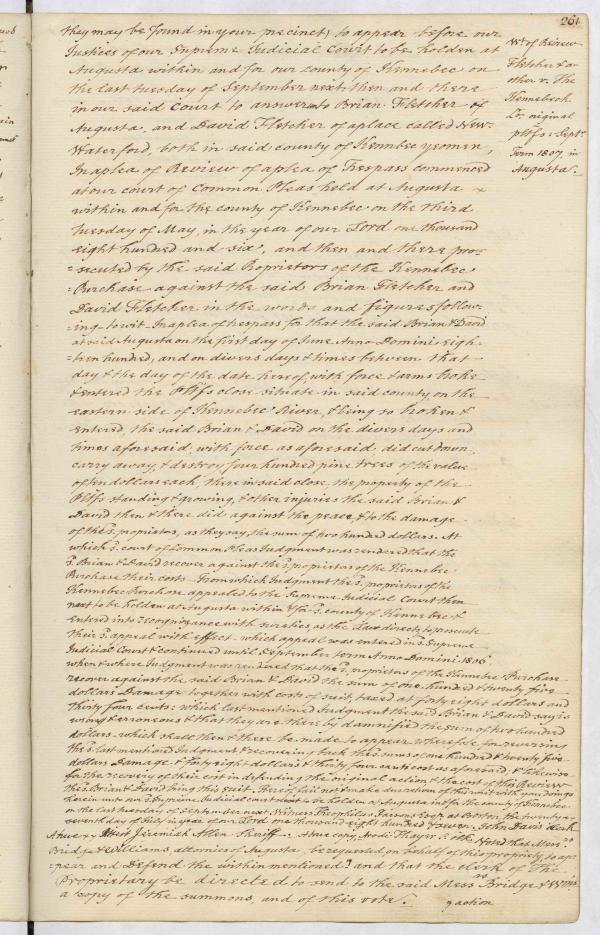 261
they may be found in your precinct) to appear before our
Justices of our Supreme Judicial Court to be holden at
Augusta within and for our county of Kennebec on
the last tuesday of September next: then and there
in our said Court to answer unto Brian Fletcher of
Augusta, and David Fletcher of a place called New-
Waterford, both in said county of Kennebec yeomen,
In a plea of Review of a plea of Trespass commenced
at our court of Common Pleas held at Augusta &
within and for the county of Kennebec on the third
tuesday of May, in the year of our Lord one thousand
eight hundred and six, and then and there pro-
=secuted by the said Proprietors of the Kennebec
=Purchase against the said Brian Fletcher and
David Fletcher in the words and figures follow-
=ing to wit In a plea of trespass for that the said Brian & David
at said Augusta on the first day of June Anno Domini eigh-
=teen hundred, and on divers days & times between that
day & the day of the date hereof, with force & arms broke
& entered the Pltfs close situate in said county, on the
eastern side of Kennebec River, & being so broken &
entered, the said Brian & David on the divers days and
times aforesaid, with force as aforesaid, did cut down,
carry away, & destroy four hundred pine trees of the value
of ten dollars each, there in said close, the property of the
Pltfs standing & growing, & other injuries the said Brian &
David then & there did against the peace, & to the damage
of the sd. proprietors, as they say, the sum of two hundred dollars. At
which sd. court of Common Pleas Judgment was rendered that the
sd. Brian & David recover against the sd. proprietors of the Kennebec
Purchase their costs from which Judgment the sd. proprietors of the
Kennebec Purchase appealed to the Supreme Judicial Court then
next to be holden at Augusta within & for sd. county of Kennebec &
entered into recognizance with sureties as the Law directs to prosecute
their sd. appeal with effect which appeal was entered in sd. Supreme
Judicial Court & continued until September term Anno Domini 1806
when & where Judgment was rendered that the sd. proprietors of the Kennebec Purchase
recover against the said Brian & David the sum of one hundred & twenty five
dollars Damage together with costs of suit taxed at forty eight dollars and
thirty four cents: which last mentioned Judgment the said Brian & David say is
wrong & erroneous & that they are thereby damnified the sum of two hundred
dollars which shall then & there be made to appear wherefore for reversing
the sd. last mentioned Judgment & recovering back the sd. sums of one hundred & twenty five
dollars Damage, & forty eight dollars & thirty four cents cost as aforesaid, & likewise
for the recovery of their cost in defending the original action & the cost of this Review
the sd. Brian & David bring this suit. Hereof fail not & make due return of this writ with your doings
herein unto our sd. Supreme Judicial court next to be holden at Augusta in & for the county of Kennebec
on the last tuesday of September next Witness Theophilus Parsons Esqr. at Boston, the twenty-
seventh day of July in year of our Lord one thousand eight hundred & seven. John Davis Clerk
A true copy Attest Jeremiah Allen Sheriff. A true copy Nodi Thayer Voted that Messrs
Bridge & Williams, attornies of Augusta, be requested on behalf of this propriety, to ap-
=pear and Defend the within mentioned and that the clerk of the
Proprietary be directed to send to the said Messrs Bridge & Wms
a copy of the summons, and of this vote.
action
Wt. of Review
Fletcher & an
other v. The
Kennebeck
Co. original
pltfs: Sept.
Term 1807 in
Augusta.